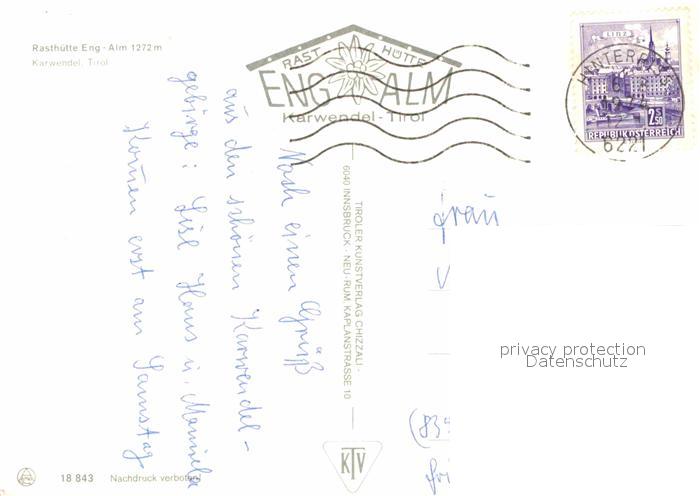 Rasthütte Eng - Alm 1272 m
Karwendel, Tirol
RAST HÜTTE
ENG ALM
Karwendel - Tirol
LINZ
2.50
REPUBLIK ÖSTERREICH
6221
Noch einen Grüß
aus den schönen Karwendel-
gebirge: Lisl Hans u. Manuela
Kommen erst am Samstag
TIROLER KUNSTVERLAG CHIZZALI ·
6040 INNSBRUCK - NEU-RUM, KAPLANSTRASSE 10
Frau
V
privacy protection
Datenschutz
(839
KTV
18 843 Nachdruck verboten!